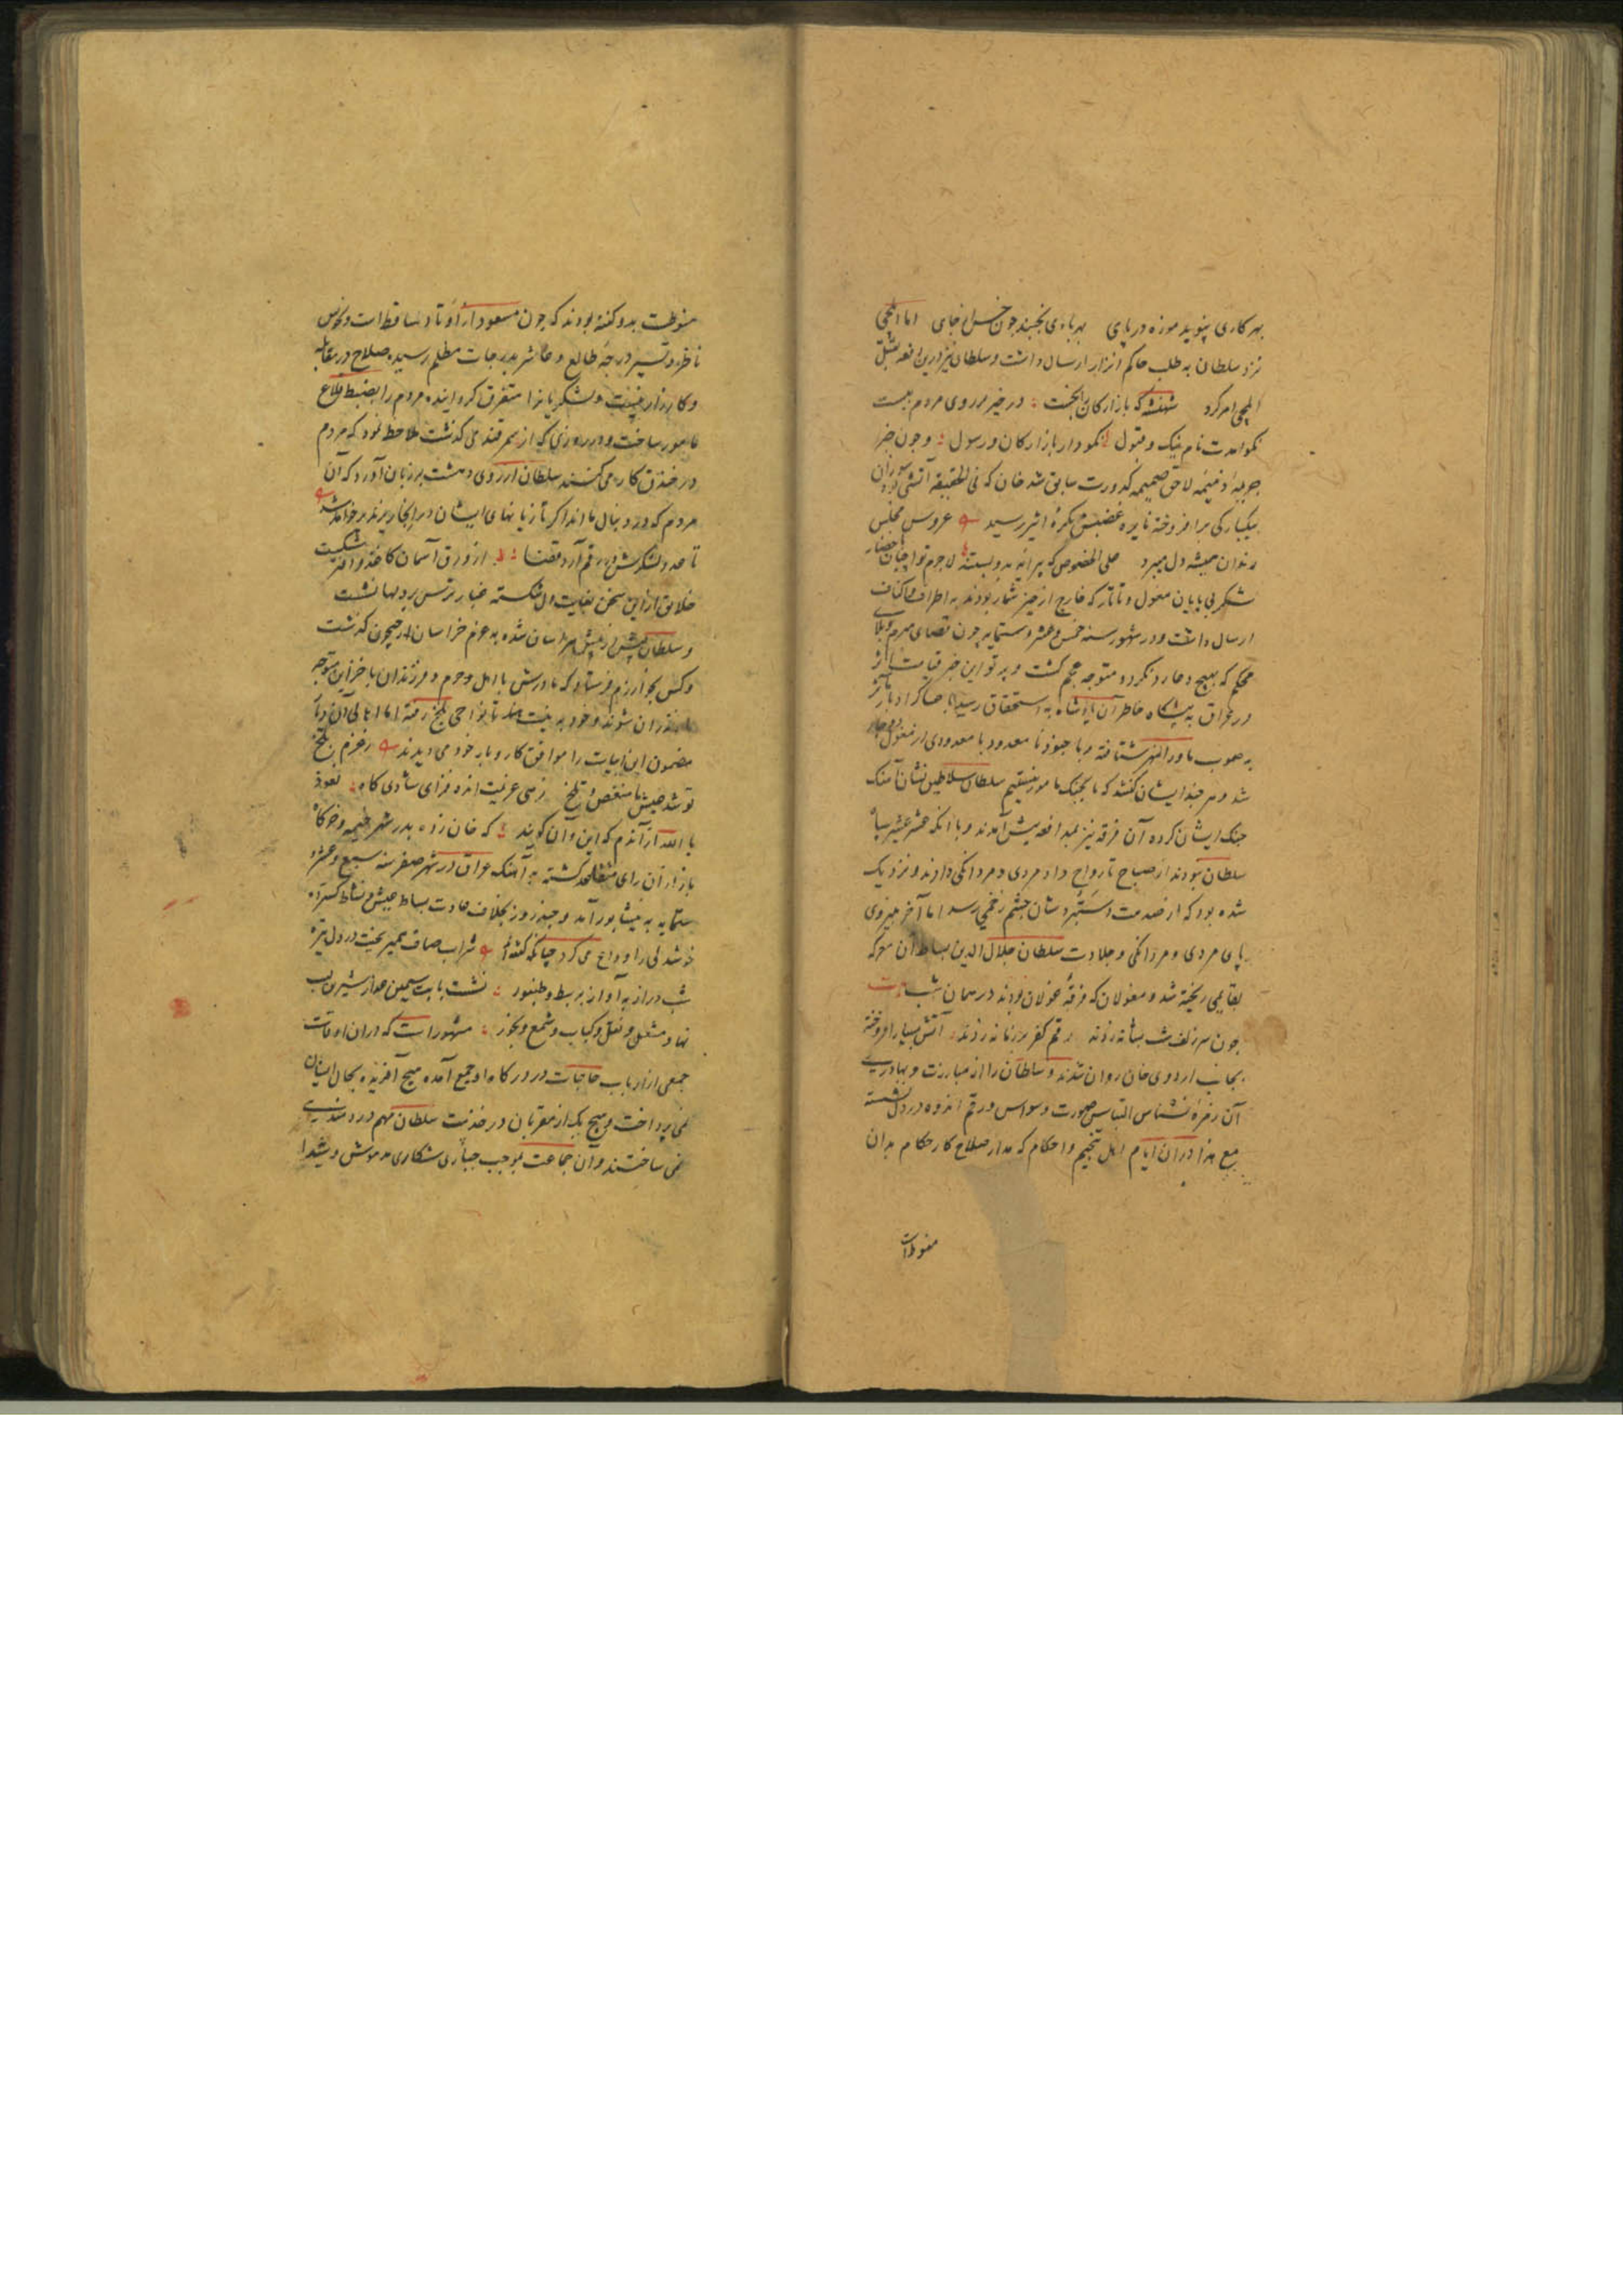 بهر کاری پوید موزه در پای بهر بادی نجنبد چون خس از جای اما ایلچی
نزد سلطان به طلب حاکم اترار ارسال داشت و سلطان نیز درین واقعه بقتل
ایلچی امر کرد شهنشه که بازارکان را بخست در خیر بر روی مردم ببست
نکو بایدت نام نیک و قبول نکو دار بازارکان و رسول و چون خبر
جریمهٔ ذمیمه لاحق ضمیمه کدورت سابق شد خان که فی الحقیقه آتشی بود سوزان
بیکبارکی برافروخته نایره غضبش بکرهٔ اثیر رسید عروس مجلس
رندان همیشه دل میبرد علی الخصوص که پیرایه بدو بستند لاجرم تواچیان باحضار
لشکر بی پایان مغول و تاتار که خارج از حیز شمار بودند به اطراف و اکناف
ارسال داشت و در شهور سنه خمس و عشر و ستمایه چون قضای مبرم و بلای
محکم که بهیچ دعا رد نکردد متوجه عجم کشت و پرتو این خبر قیامت اثر
در عراق به پیشکاه خاطر آن پادشاه به استحقاق رسید با عساکر
به صوب ماوراءالنهر شتافته و با جنود نا معدود با معدودی از مغول دوچار
شد و هر چند ایشان کفتند که ما بجنک مامور نیستیم سلطان سلاطین نشان آهنک
جنک ایشان کرده آن فرقه نیز بمدافعه پیش آمدند و با آنکه عشر عشیر سپاه
سلطان نبودند از صباح تا رواح داد مردی و مردانکی دادند و نزدیک
شده بود که از صدمت دستبردشان چشم زخمی رسد اما آخر بنیروی
پای مردی و مردانکی و جلادت سلطان جلال الدین بساط آن معرکه
بقایمی ریخته شد و مغولان که فرقهٔ غولان بودند در همان شب بیت
چون سر زلف شب بشانه زدند رقم کفر بر زمانه زدند آتش بسیار افروخته
بجانب اردوی خان روان شدند و سلطان را از مبارزت و بهادری
آن زمرهٔ نسناس التباس صورت وسواس و رقم اندوه در دل نشسته
مع هذا در آن ایام اهل تنجیم و احکام که مدار صلاح کار حکام بدان
منوطت
منوطت بدو کفته بودند که چون مسعود از اوتاد ساقط است و نحوس
ناظر و تسییر درجهٔ طالع و عاشر بدرجات مظلم رسیده صلاح در مقابله
و کارزار نیست و لشکریانرا متفرق کردانیده مردم را بضبط قلاع
مامور ساخت و در روزی که از سمرقند می کذشت ملاحظه نمود که مردم
در خندق کار می کنند سلطان از روی دهشت بر زبان آورد که آن
مردم که در دنبال ما اند اکر تازیانهای ایشان در اینجا ریزند پر خواهد شد
تا عدد لشکرش در رقم آرد قضا از ورق آسمان کاغذ و دفتر شکست
خلایق از این سخن بغایت دل شکسته غبار ترس بر دلها نشست
و سلطان پیش از پیش هراسان شده به عزم خراسان از جیحون کذشت
و کس بخوارزم فرستاد که مادرش با اهل و حرم و فرزندان با خزاین متوجه
مازندران شوند و خود به نیت هند تا نواحی بلخ رفته اما اهالی آن دیار
مضمون این ابیات را موافق کار و بار خود می دیدند ز عزم بلخ
تو شد عیش ما منغص و تلخ زهی عزیمت انده فزای شادی کاه نعوذ
بالله از آندم که این و آن کویند که خان زاده بدر شهر خیمه و خرکاه
باز از آن رای متقاعد کشته به آهنک عراق در شهر صفر سنه سبع و عشر و
ستمایه به نیشابور آمد و چند روز بخلاف عادت بساط عیش و نشاط کسترده
خوشدلی را وداع می کرد چنانکه کفته ام شراب صاف میریخت در دل تیره
شب دراز به آواز بربط و طنبور نشست با بت سیمین عذار شیرین لب
نهاد مشعل و نقل و کباب و شمع و بخور مشهور است که در آن اوقات
جمعی از ارباب حاجات در درکاه او جمع آمده هیچ آفریده بحال ایشان
نمی پرداخت و هیچ یک از مقربان در خدمت سلطان مهم دردمندی
نمی ساختند و آن جماعت بموجب جباری شکاری مدهوش و شیدا